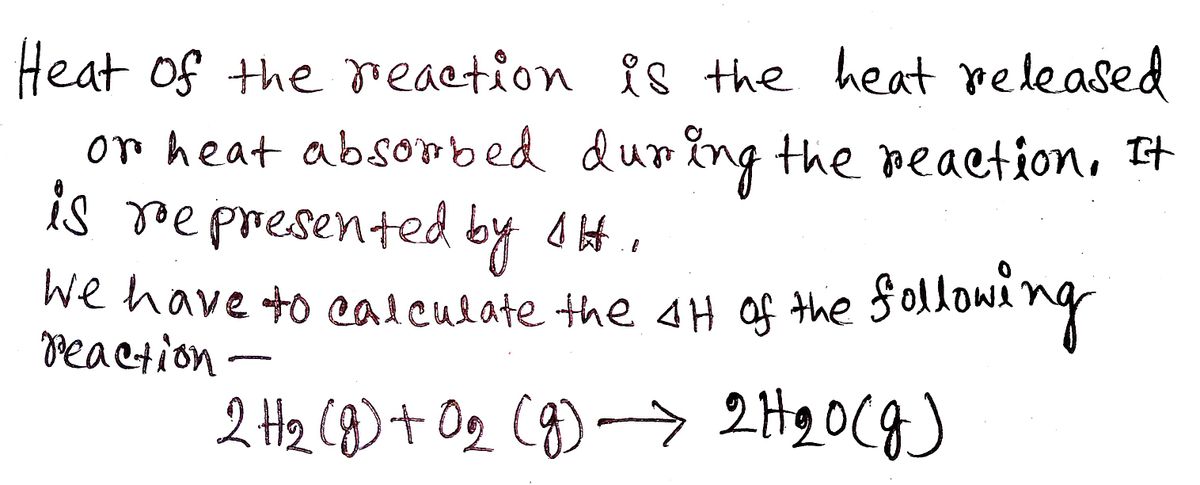 Heat of the reaction is the heat released
or heat absorbed during the reaction. It
is represented by ΔH.
We have to calculate the ΔH of the following
reaction —
2H₂(g) + O₂ (g) ⟶ 2H₂O(g)